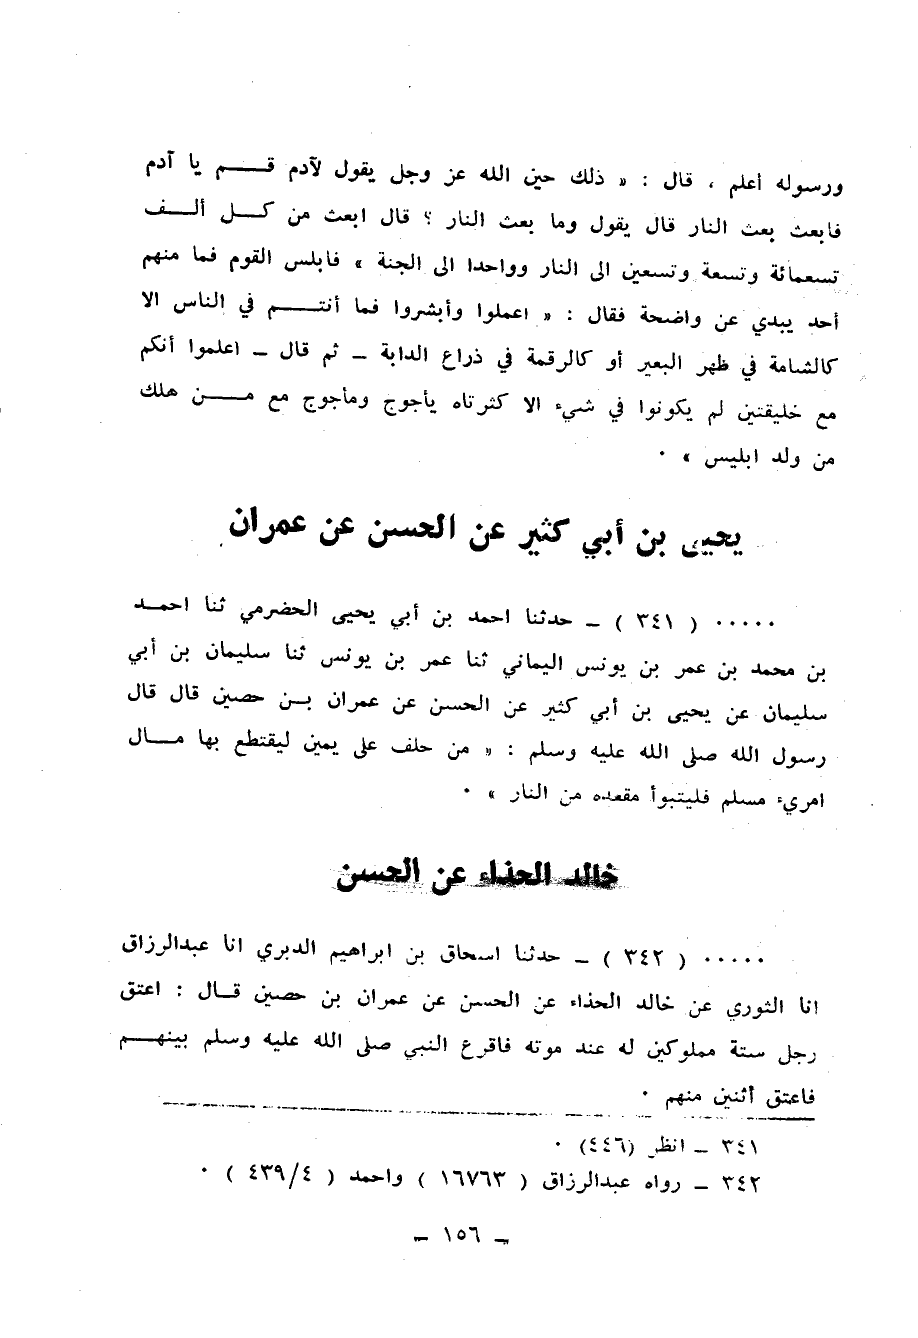 ورسوله أعلم ، قال : « ذلك حين الله عز وجل يقول لآدم قم يا آدم
فابعث بعث النار قال يقول وما بعث النار ؟ قال ابعث من كل ألف
تسعمائة وتسعة وتسعين الى النار وواحدا الى الجنة » فابلس القوم فما منهم
أحد يبدي عن واضحة فقال : « اعملوا وأبشروا فما أنتم في الناس الا
كالشامة في ظهر البعير أو كالرقمة في ذراع الدابة - ثم قال - اعلموا أنكم
مع خليقتين لم يكونوا في شيء الا كثرتاه يأجوج ومأجوج مع من هلك
من ولد ابليس » ·
يحيى بن أبي كثير عن الحسن عن عمران
····· ( ٣٤١ ) - حدثنا احمد بن أبي يحيى الحضرمي ثنا احمد
بن محمد بن عمر بن يونس اليماني ثنا عمر بن يونس ثنا سليمان بن أبي
سليمان عن يحيى بن أبي كثير عن الحسن عن عمران بن حصين قال قال
رسول الله صلى الله عليه وسلم : « من حلف على يمين ليقتطع بها مال
امريء مسلم فليتبوأ مقعده من النار » ·
خالد الحذاء عن الحسن
····· ( ٣٤٢ ) - حدثنا اسحاق بن ابراهيم الدبري انا عبدالرزاق
انا الثوري عن خالد الحذاء عن الحسن عن عمران بن حصين قال : اعتق
رجل ستة مملوكين له عند موته فاقرع النبي صلى الله عليه وسلم بينهم
فاعتق أثنين منهم ·
٣٤١ - انظر (٤٤٦) ·
٣٤٢ - رواه عبدالرزاق ( ١٦٧٦٣ ) واحمد ( ٤٣٩/٤ ) ·
- ١٥٦ -